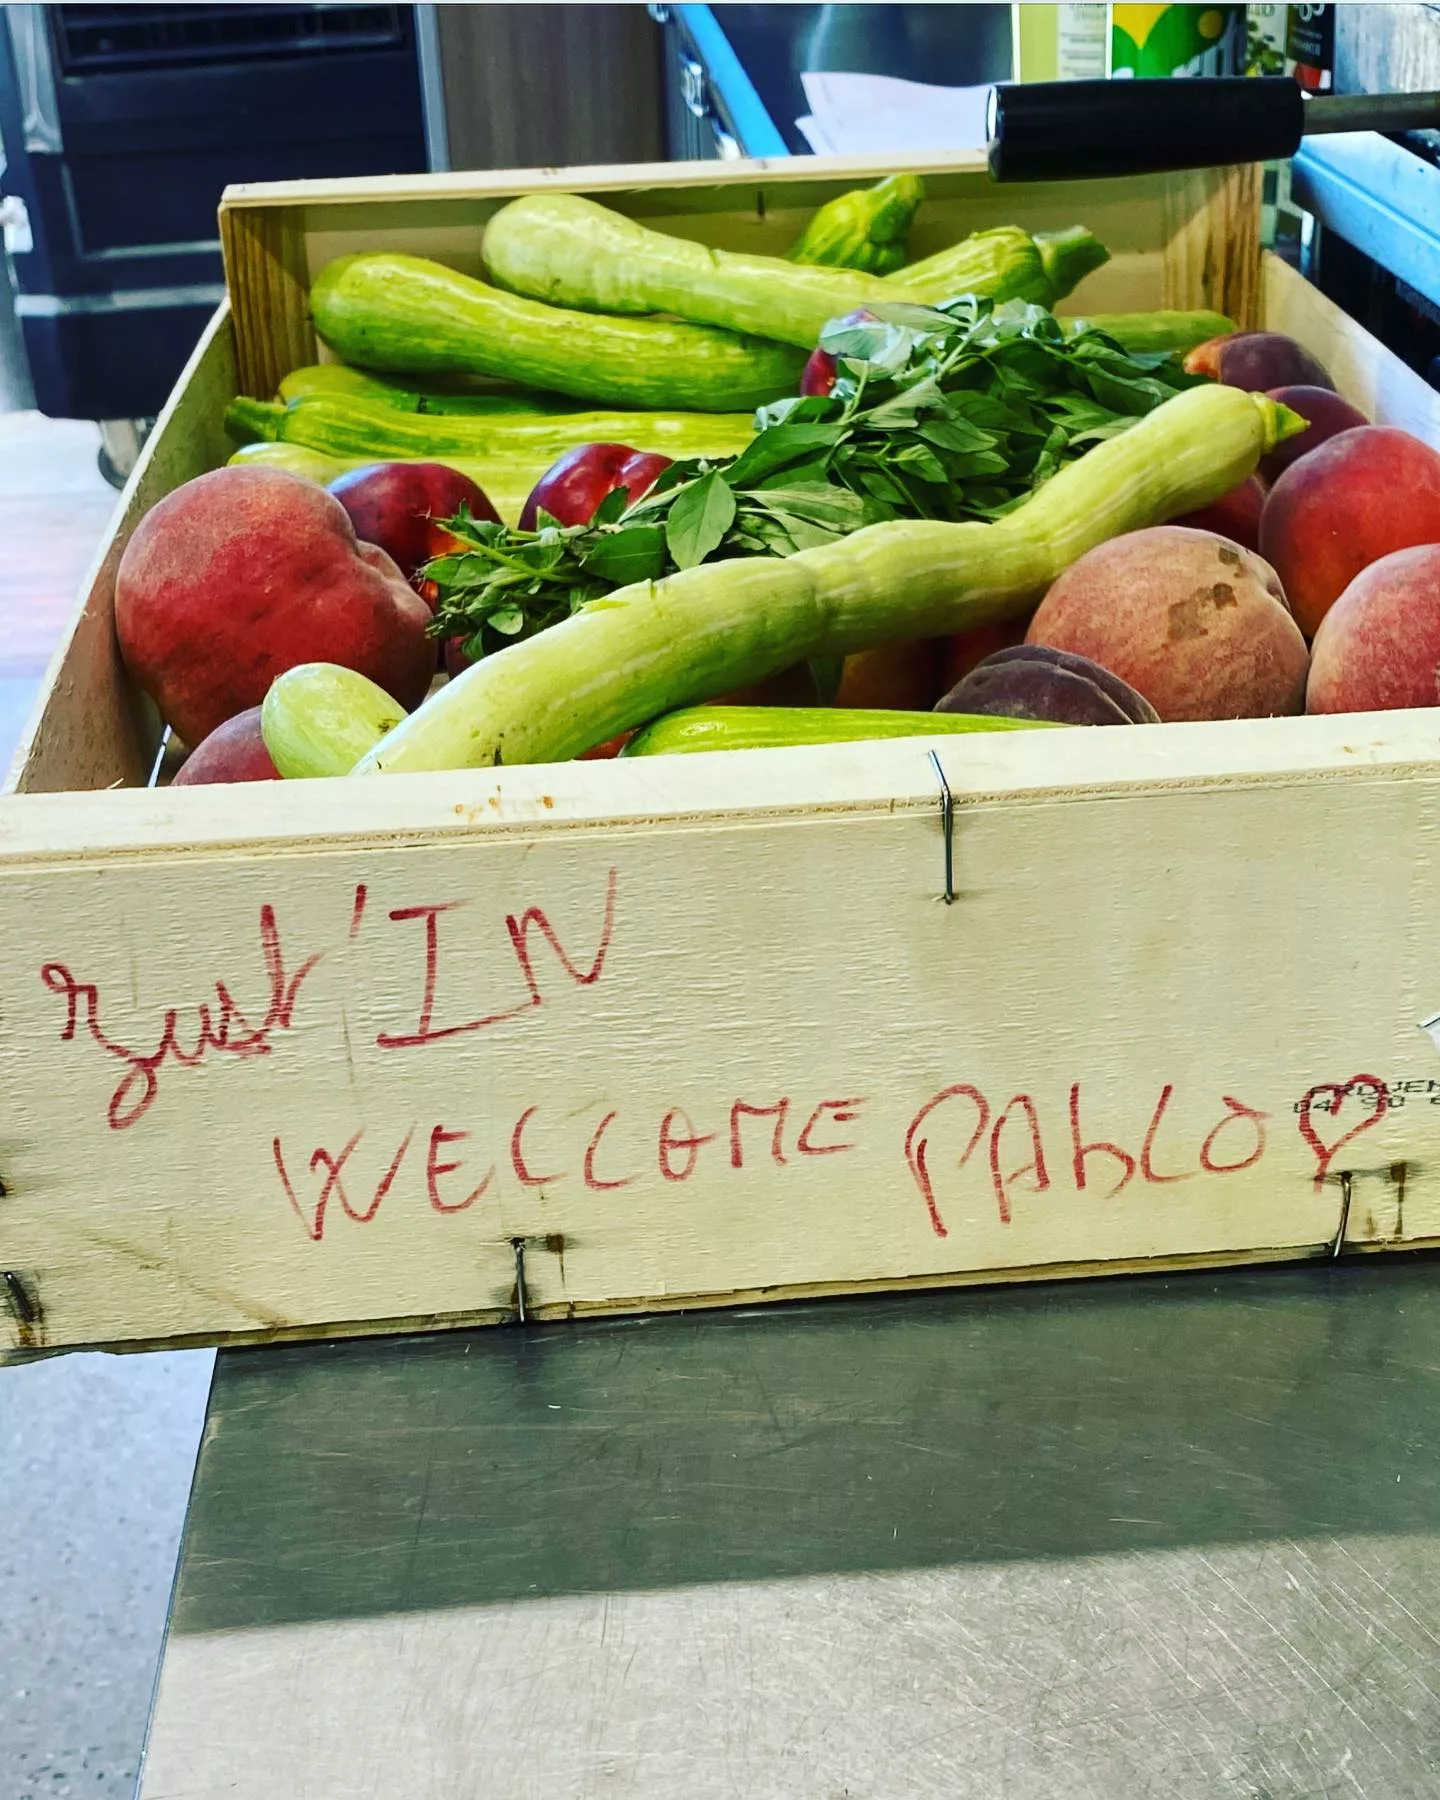 Just'IN
WELCOME PAbLO ♡